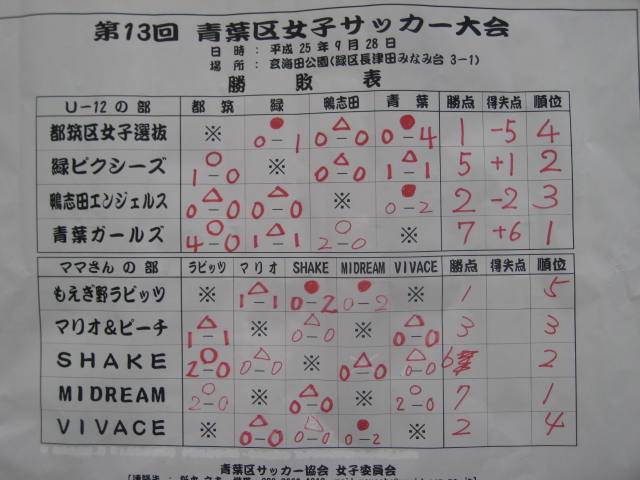 第13回 青葉区女子サッカー大会
日 時 : 平成 25 年 9 月 28 日
場 所 : 玄海田公園(緑区長津田みなみ台 3-1)
勝 敗 表
U-12 の 部 都 筑 緑 鴨志田 青 葉 勝点 得失点 順位
都筑区女子選抜 ※ ●0-1 △0-0 ●0-4 1 -5 4
緑ピクシーズ ○1-0 ※ △0-0 △1-1 5 +1 2
鴨志田エンジェルス △0-0 △0-0 ※ ●0-2 2 -2 3
青葉ガールズ ○4-0 △1-1 ○2-0 ※ 7 +6 1
ママさん の 部 ラビッツ マリオ SHAKE MIDREAM VIVACE 勝点 得失点 順位
もえぎ野ラビッツ ※ △1-1 ●0-2 ●0-2 ※ 1 5
マリオ&ピーチ △1-1 ※ △0-0 ※ △0-0 3 3
SHAKE ○2-0 △0-0 ※ △0-0 △0-0 6 2
MIDREAM ○2-0 ※ △0-0 ※ ○2-0 7 1
VIVACE ※ △0-0 △0-0 ●0-2 ※ 2 4
青葉区サッカー協会 女子委員会